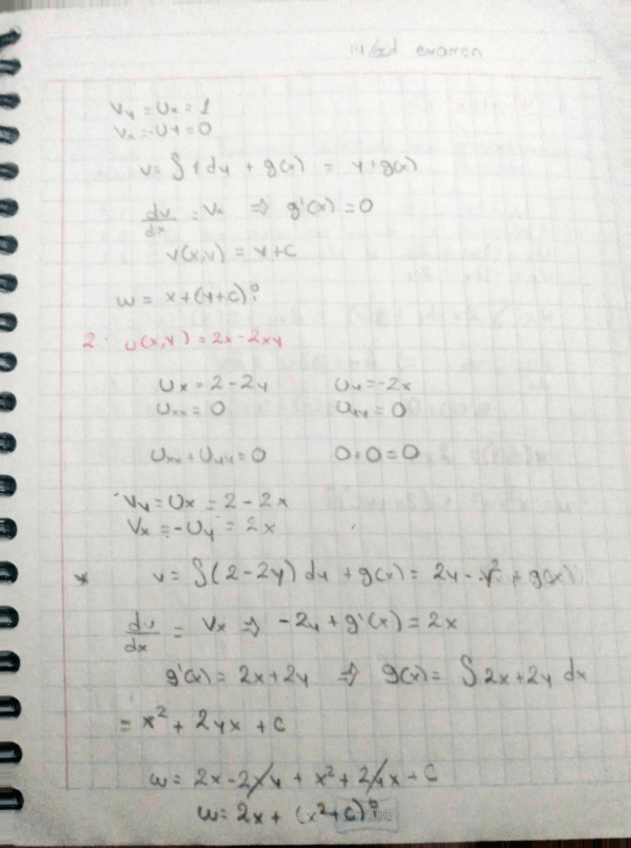 14/oct examen
Vy = Ux = 1
Vx = -Uy = 0
v = ∫ 1 dy + g(x) = y + g(x)
dv/dx = Vx ⇒ g'(x) = 0
v(x,y) = y + c
w = x + (y + c)i
2.- u(x,y) = 2x - 2xy
Ux = 2 - 2y Uy = -2x
Uxx = 0 Uyy = 0
Uxx + Uyy = 0 0+0=0
Vy = Ux = 2 - 2x
Vx = -Uy = 2x
* v = ∫(2-2y) dy + g(x) = 2y - y² + g(x)
dv/dx = Vx ⇒ -2y + g'(x) = 2x
g'(x) = 2x + 2y ⇒ g(x) = ∫ 2x + 2y dx
= x² + 2yx + c
w = 2x - 2xy + x² + 2yx + C
w = 2x + (x² + c)i